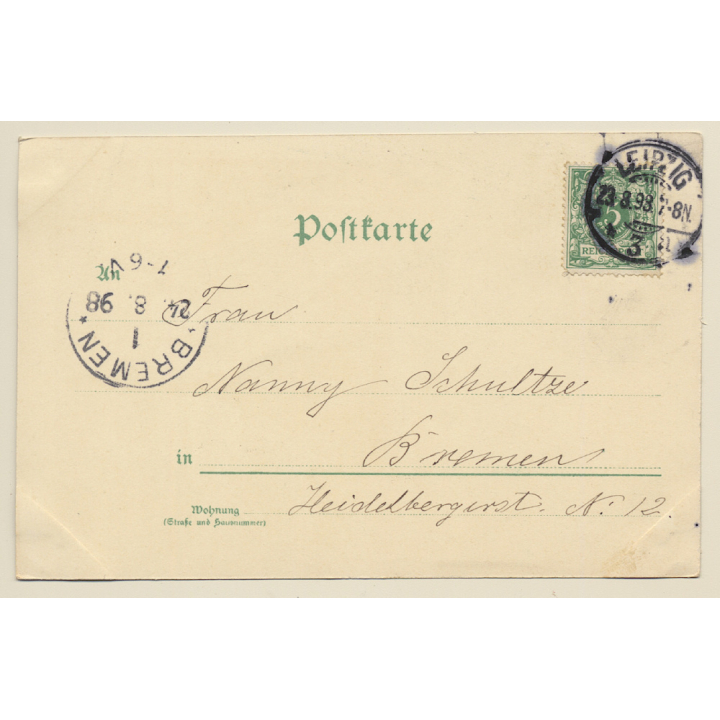 LEIPZIG
23.8.98. 7-8N.
3
5
Postkarte
An
Frau
Nanny Schultze
in Bremen
Wohnung Heidelbergerst. No. 12
(Straße und Hausnummer)
BREMEN
1
24. 8. 98
6-7 V